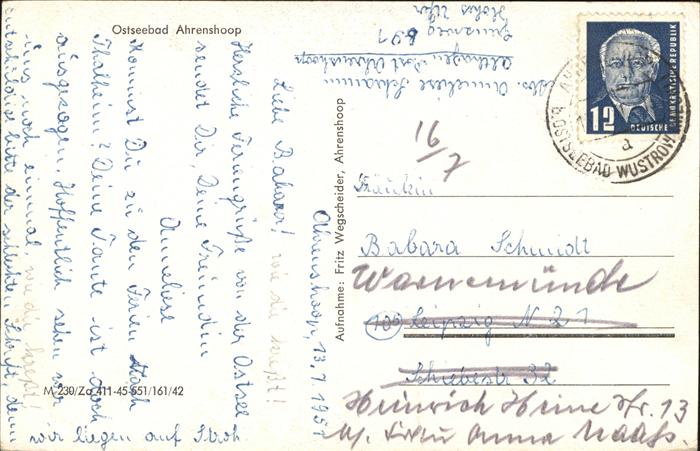 Ostseebad Ahrenshoop
Ahrenshoop, 13.7.1951
Liebe Babara! wie du hopst!
Herzliche Feriengrüße von der Ostsee
sendet Dir, Deine Freundin
Anneliese
Kommst Du zu den Ferien nach
Thalheim? Deine Tante ist doch
ausgezogen. Hoffentlich sehen wir
uns noch einmal, wie du hopst!
bitte der schlechten Schrift, denn
wir liegen auf Stroh.
M-230/Za 411-45-551/161/42
Aufnahme: Fritz Wegscheider, Ahrenshoop
Abs. Anneliese
Ahrenshoop
691
16/7
12
DEUTSCHE DEMOKRATISCHE REPUBLIK
OSTSEEBAD WUSTROW
a
Fräulein
Babara Schmidt
Warnemünde
(10b) Leipzig N 21
Schiebestr. 32
Heinrich Heine Str. 13
b/. Frau Anna Maaß.